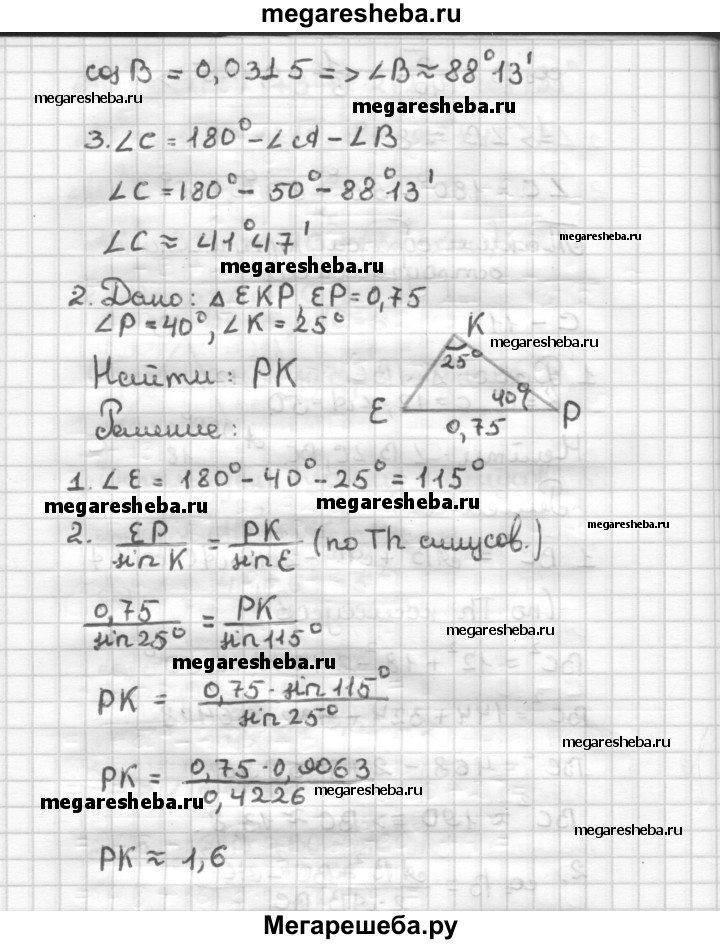 megaresheba.ru
cos B = 0,0315 => ∠B ≈ 88°13'
megaresheba.ru
megaresheba.ru
3. ∠C = 180° - ∠A - ∠B
∠C = 180° - 50° - 88°13'
∠C ≈ 41°47'
megaresheba.ru
megaresheba.ru
2. Дано: △ EKP, EP = 0,75
∠P = 40°, ∠K = 25°
K
megaresheba.ru
25°
Найти: PK
40°
E
P
0,75
Решение:
1. ∠E = 180° - 40° - 25° = 115°
megaresheba.ru
megaresheba.ru
2. EP/sin K = PK/sin E (по Th синусов.)
megaresheba.ru
0,75/sin 25° = PK/sin 115°
megaresheba.ru
megaresheba.ru
PK = 0,75 · sin 115°/sin 25°
megaresheba.ru
PK = 0,75 · 0,9063/0,4226
megaresheba.ru
megaresheba.ru
megaresheba.ru
PK ≈ 1,6
Мегарешеба.ру